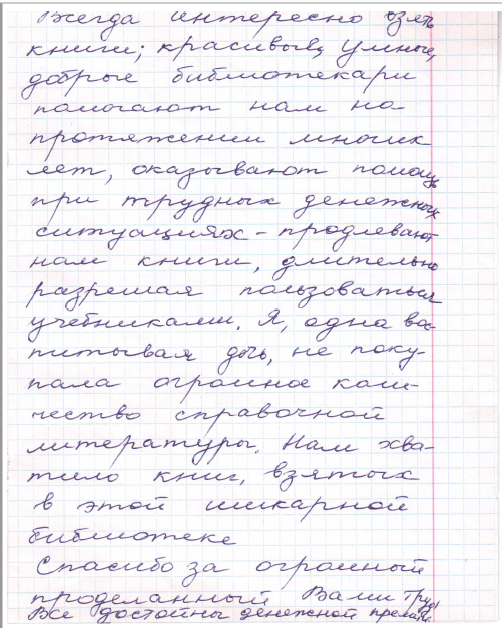 Всегда интересно взять
книги; красивые, умные,
добрые библиотекари
помогают нам на
протяжении многих
лет, оказывают помощь
при трудных денежных
ситуациях - продлевают
нам книги, длительно
разрешая пользоваться
учебниками. Я, одна вос-
питывая дочь, не поку-
пала огромное коли-
чество справочной
литературы. Нам хва-
тило книг, взятых
в этой шикарной
библиотеке
Спасибо за огромный
проделанный Вами труд!
Все достойны денежной премии.